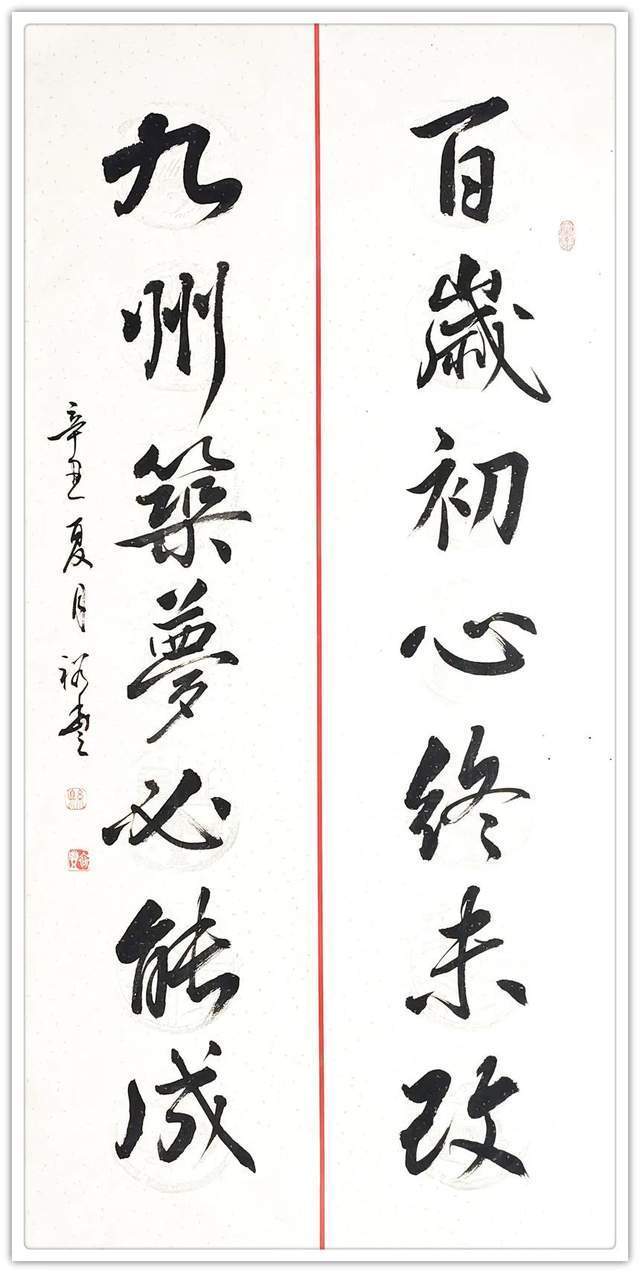 百歲初心終未改
九州築夢必能成
辛丑夏月